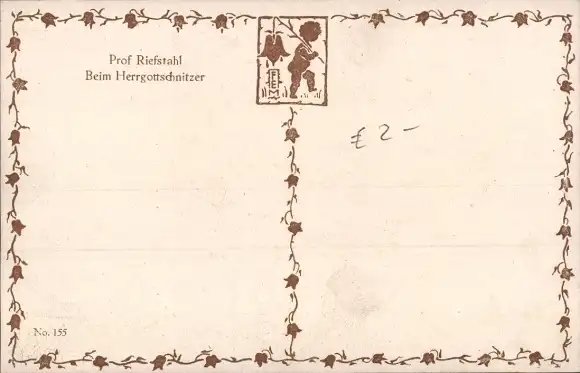 Prof Riefstahl
Beim Herrgottschnitzer
FEM
€ 2 -
No. 155